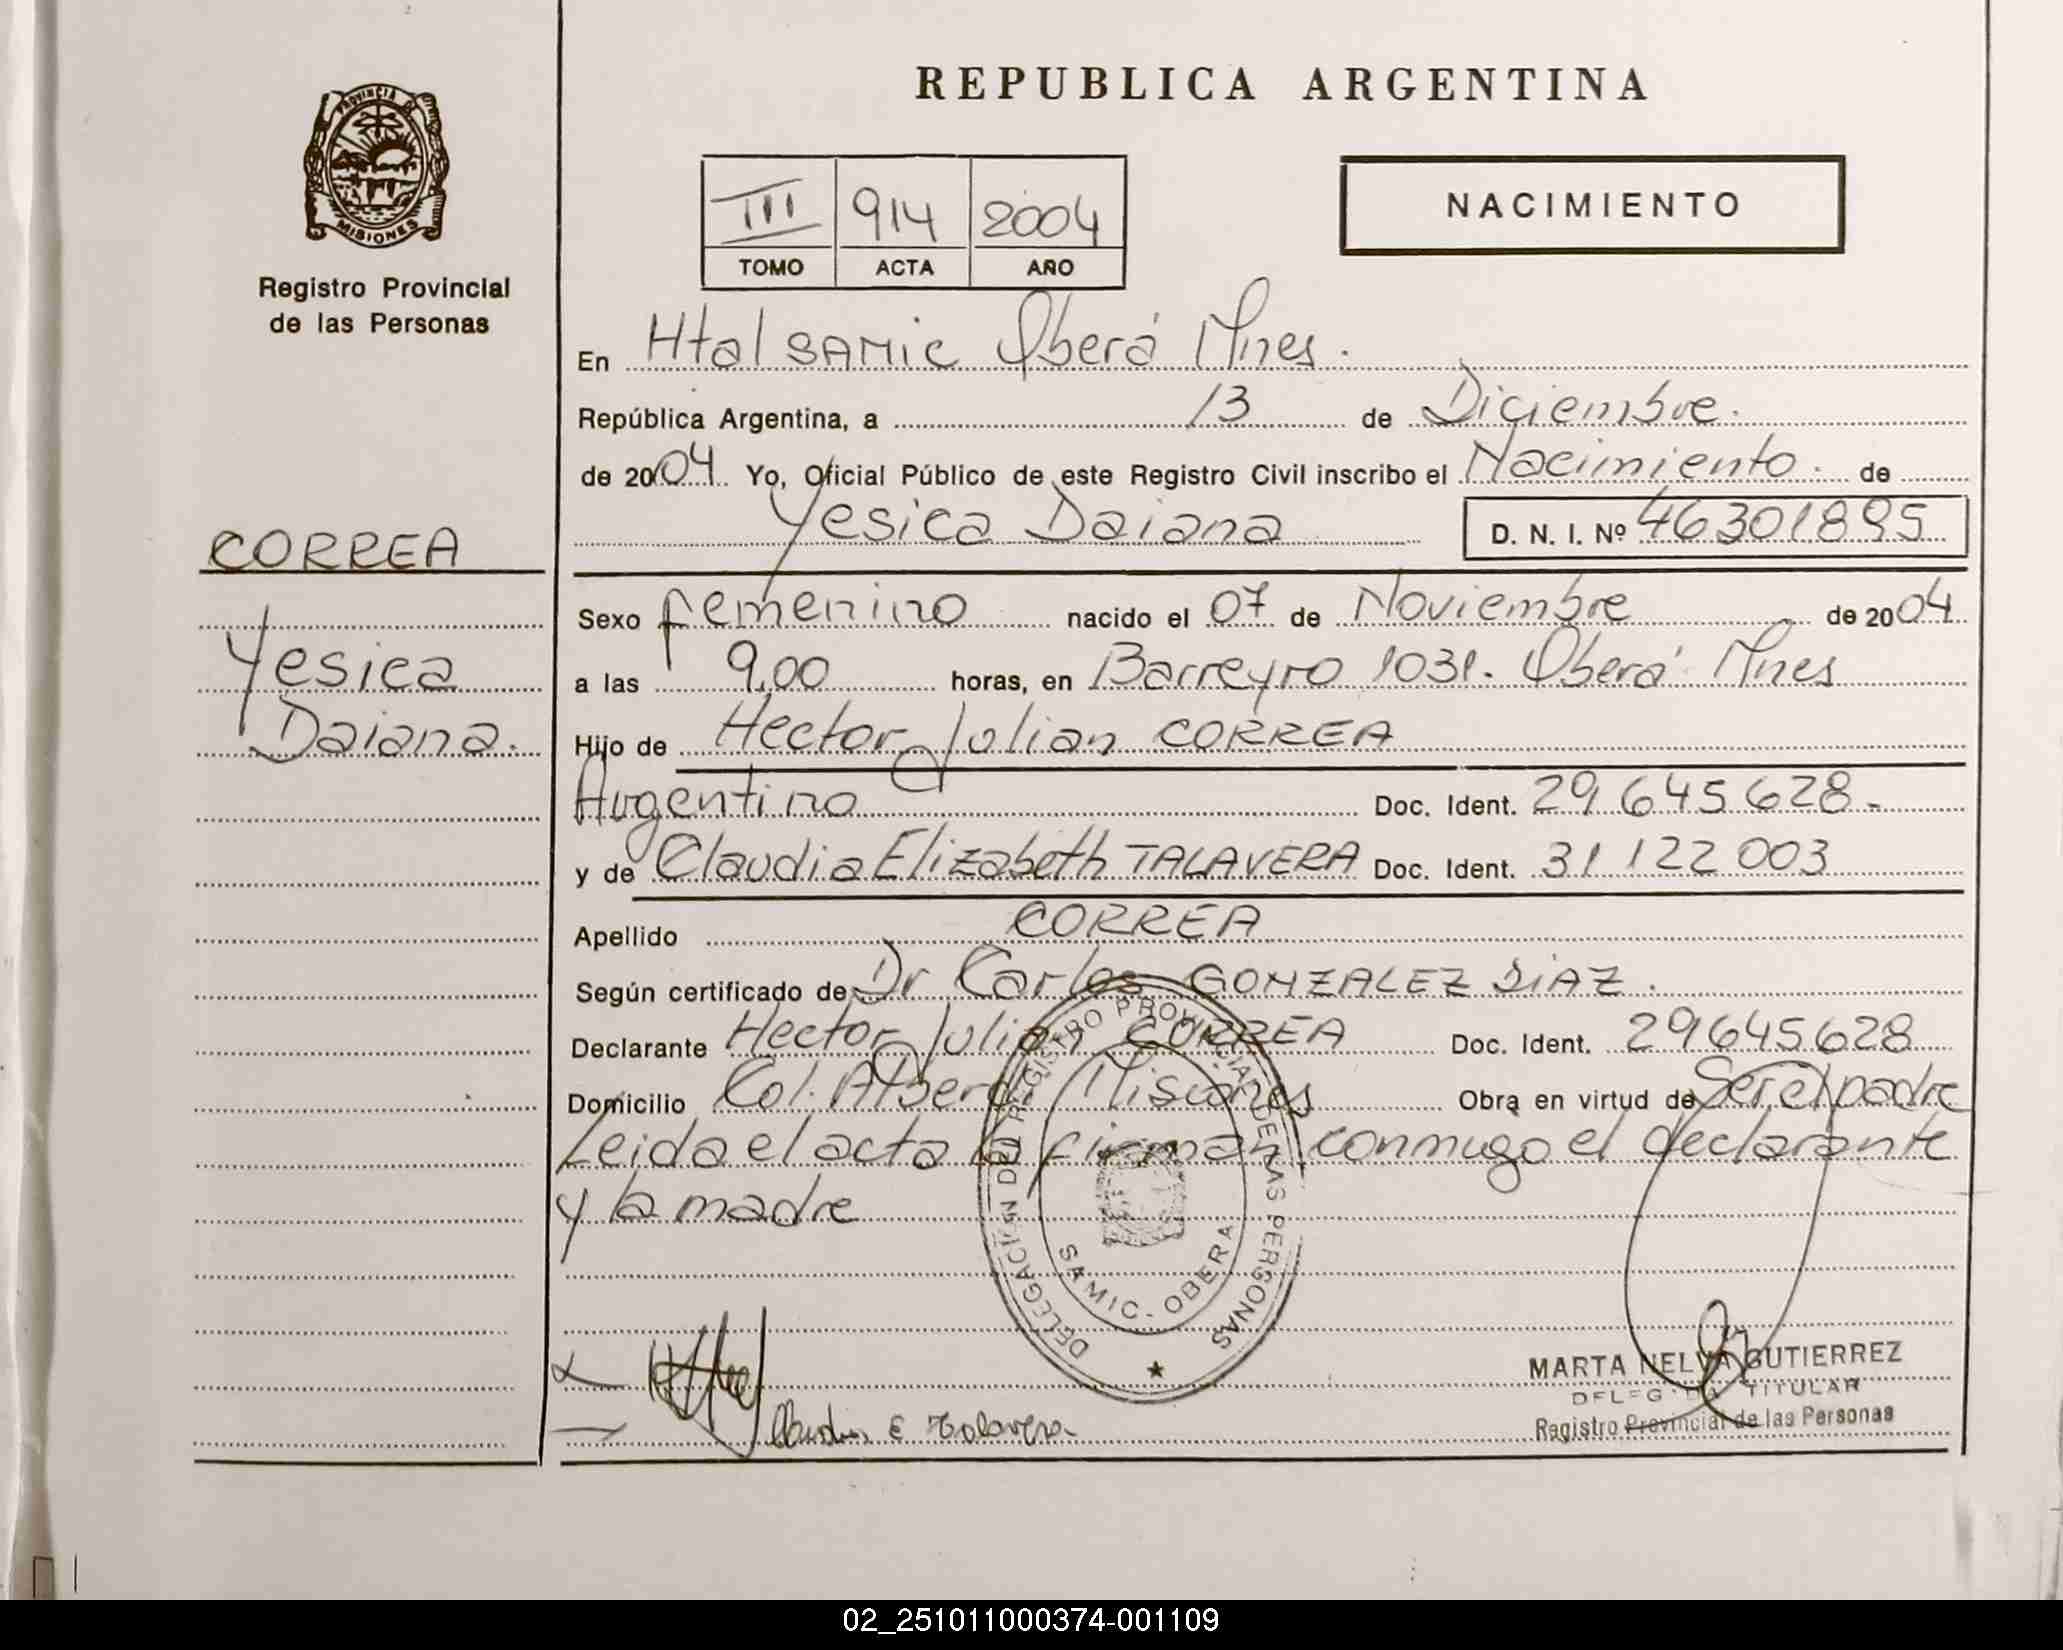 REPUBLICA ARGENTINA
PROVINCIA DE
MISIONES
Registro Provincial
de las Personas
III 914 2004
TOMO ACTA AÑO
NACIMIENTO
En Htal SAMIC Oberá Mnes.
República Argentina, a 13 de Diciembre.
de 2004. Yo, Oficial Público de este Registro Civil inscribo el Nacimiento. de
Yesica Daiana D. N. I. Nº 46301895
CORREA
Yesica
Daiana.
Sexo femenino nacido el 07 de Noviembre de 2004
a las 9,00 horas, en Barreyro 1031. Oberá Mnes
Hijo de Hector Julian CORREA
Argentino Doc. Ident. 29.645.628.
y de Claudia Elizabeth TALAVERA Doc. Ident. 31 122 003
Apellido CORREA
Según certificado de Dr Carlos GONZALEZ DIAZ.
Declarante Hector Julian CORREA Doc. Ident. 29645628
Domicilio Col. Alberdi Misiones Obra en virtud de Ser el padre
Leida el acta la firman conmigo el declarante
y la madre
DELEGACION DEL REGISTRO PROVINCIAL DE LAS PERSONAS
SAMIC - OBERA
Claudia E Talavera
MARTA NELVA GUTIERREZ
DELEGADA TITULAR
Registro Provincial de las Personas
02_251011000374-001109